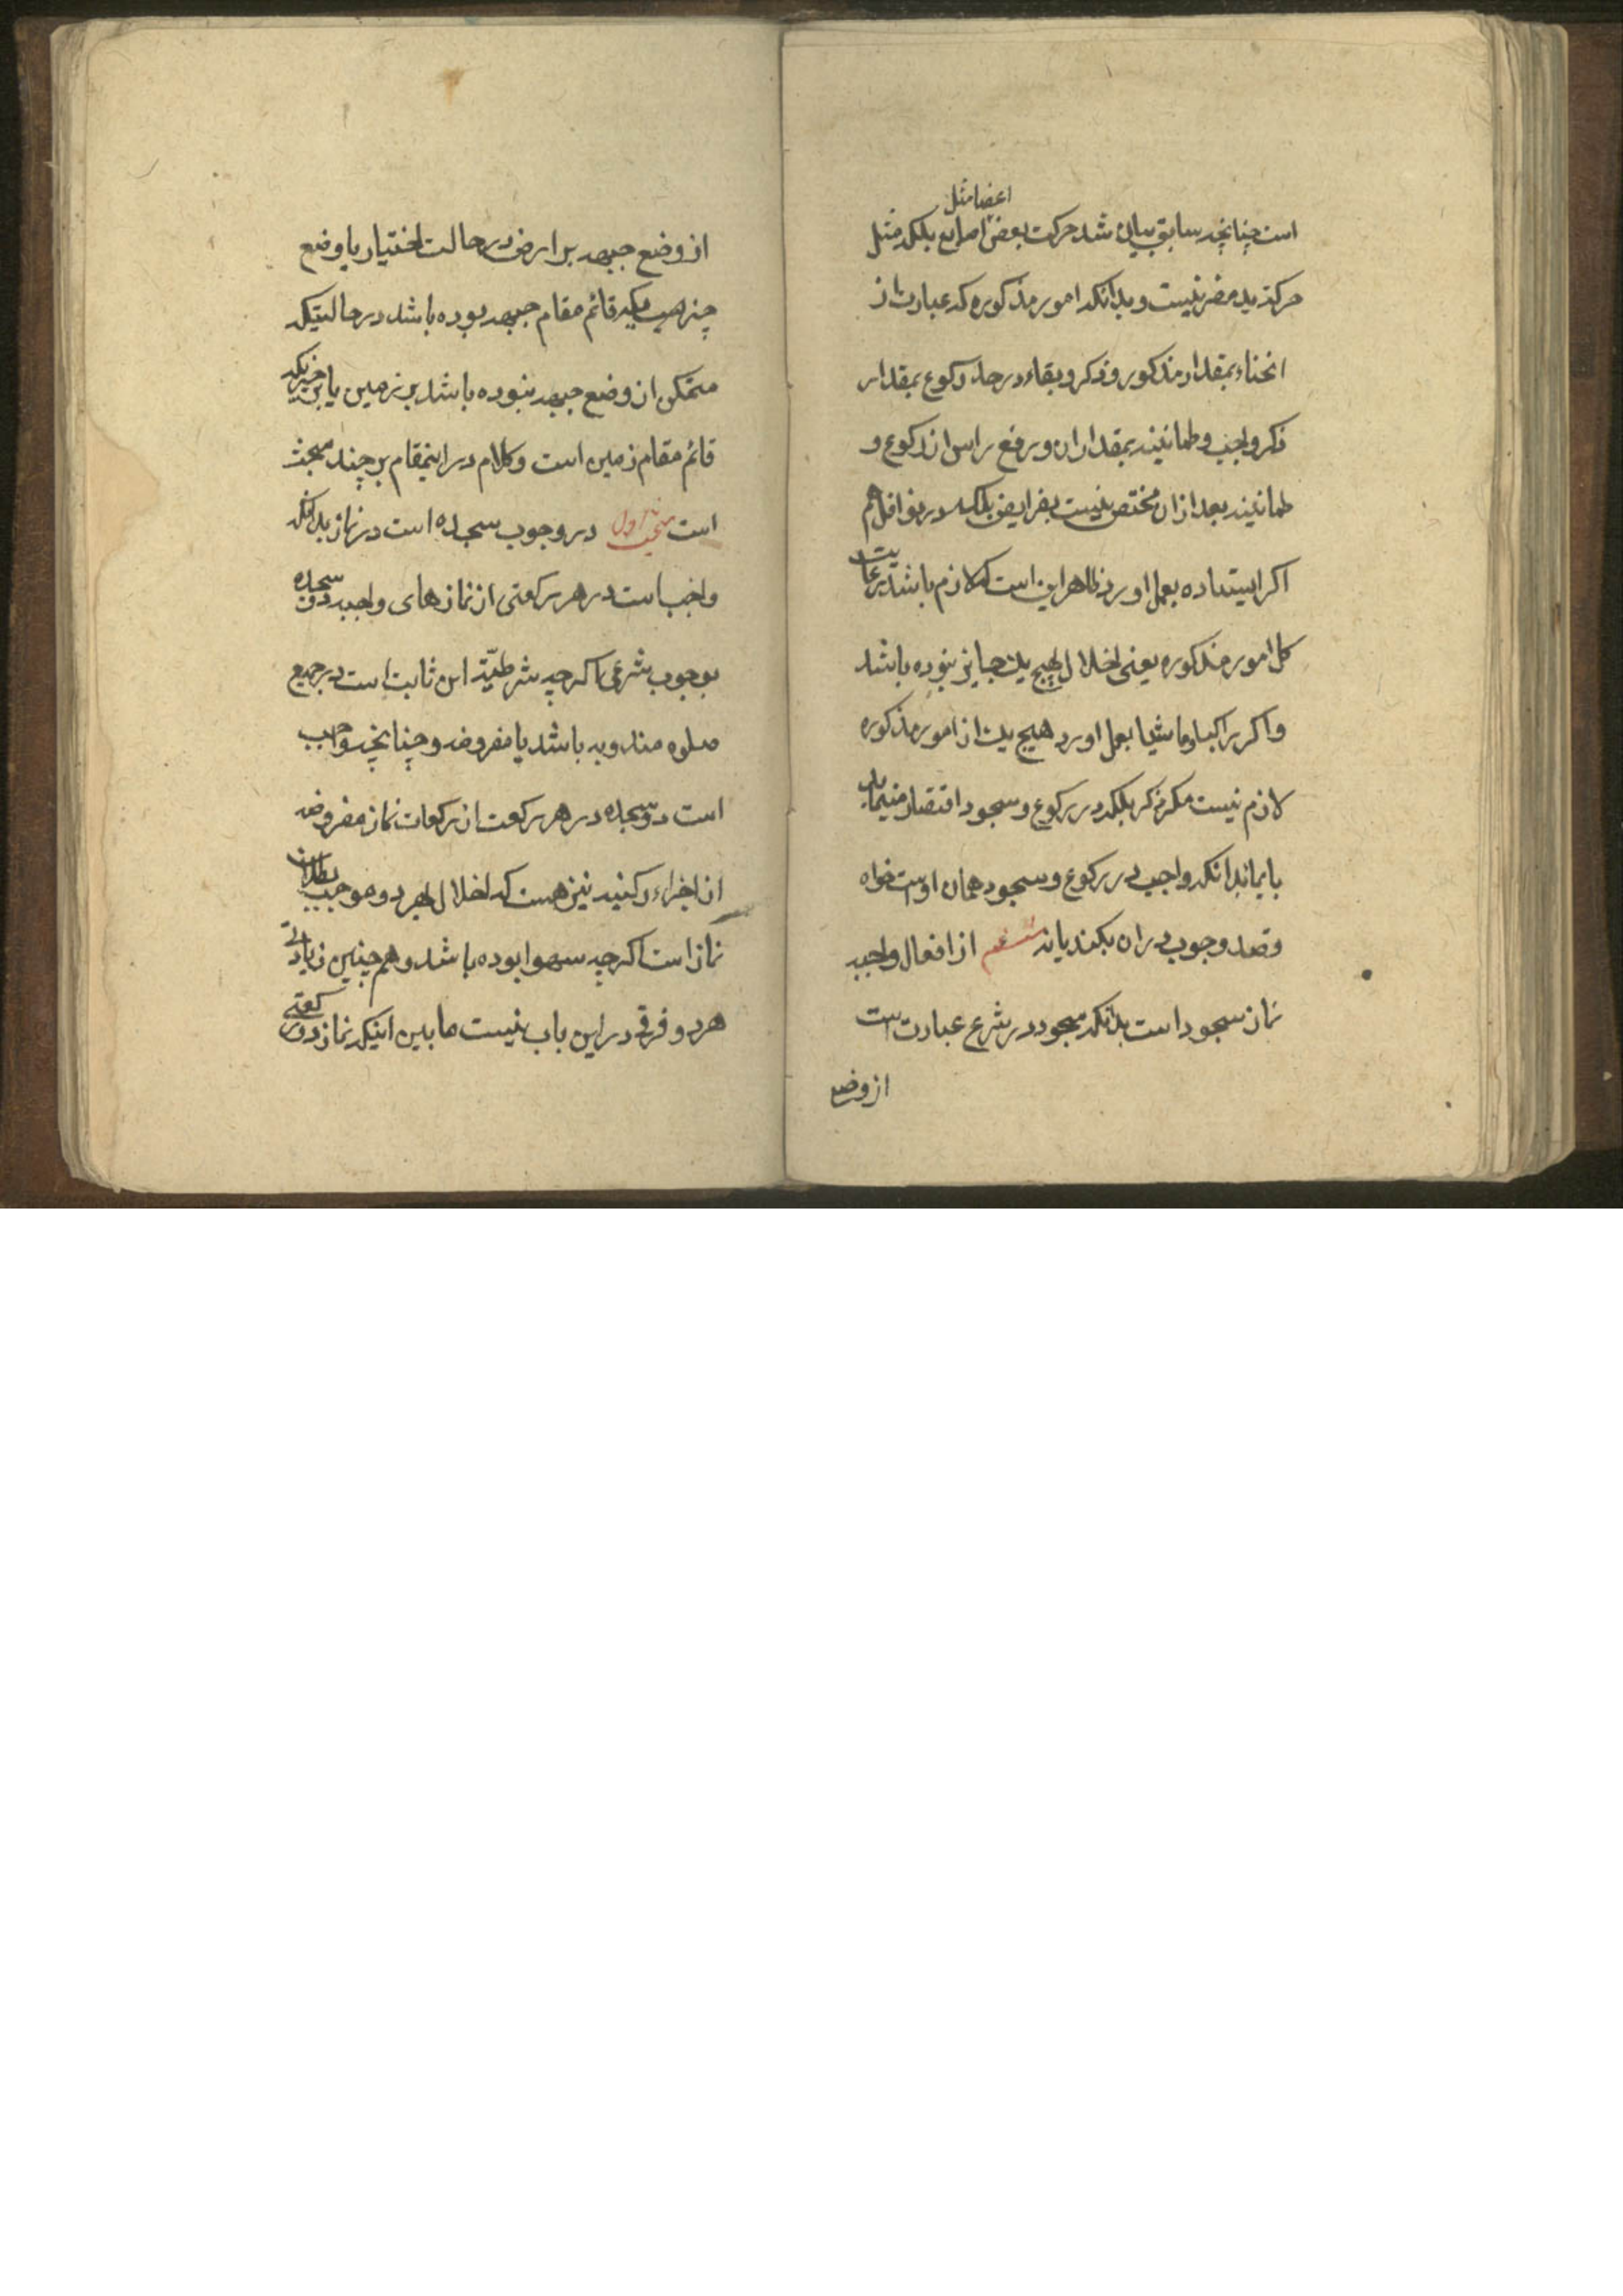 اعضا مثل
است چنانچه سابق بیان شد حرکت بعض اصابع بلکه مثل
حرکة ید مضر نیست و بدانکه امور مذکوره که عبارت از
انحناء بمقدار مذکور و ذکر و بقاء در حد رکوع بمقدار
ذکر واجب و طمانینه بمقدار ان و رفع راس از رکوع و
طمانینه بعد از ان مختص نیست بفرایض بلکه در نوافل هم
اکر ایستاده بعمل اورد ظاهر این است که لازم باشد رعایت
کل امور مذکوره یعنی اخلال بهیچ یک جایز نبوده باشد
و اکر راکبا و ماشیا بعمل اورد هیچ یک از امور مذکوره
لازم نیست مکر ذکر بلکه در رکوع و سجود اقتصار مینماید
بایما بدانکه واجب در رکوع و سجود همان اوست خواه
قصد وجوب در ان بکند یا نه ششم از افعال واجبه
نماز سجود است بدانکه سجود در شرع عبارت است
از وضع
از وضع جبهه بر ارض در حالت اختیار یا وضع
چیزیکه قائم مقام جبهه بوده باشد در حالتیکه
متمکن از وضع جبهه نبوده باشد بر زمین یا بر چیزیکه
قائم مقام زمین است و کلام در اینمقام بر چند مبحث
است مبحث اول در وجوب سجده است در نماز بدانکه
واجب است در هر رکعتی از نمازهای واجبه دو سجده
بوجوب شرعی اکرچه شرطیّة این ثابت است در جمیع
صلوه مندوبه باشد یا مفروضه و چنانچه واجب
است دو سجده در هر رکعت از رکعات نماز مفروضه
از اجزاء رکنیه نیز هست که اخلال بهر دو موجب بطلان
نماز است اکرچه سهوا بوده باشد و هم چنین زیادتی
هر دو فرقی در این باب نیست ما بین اینکه نماز دو رکعتی